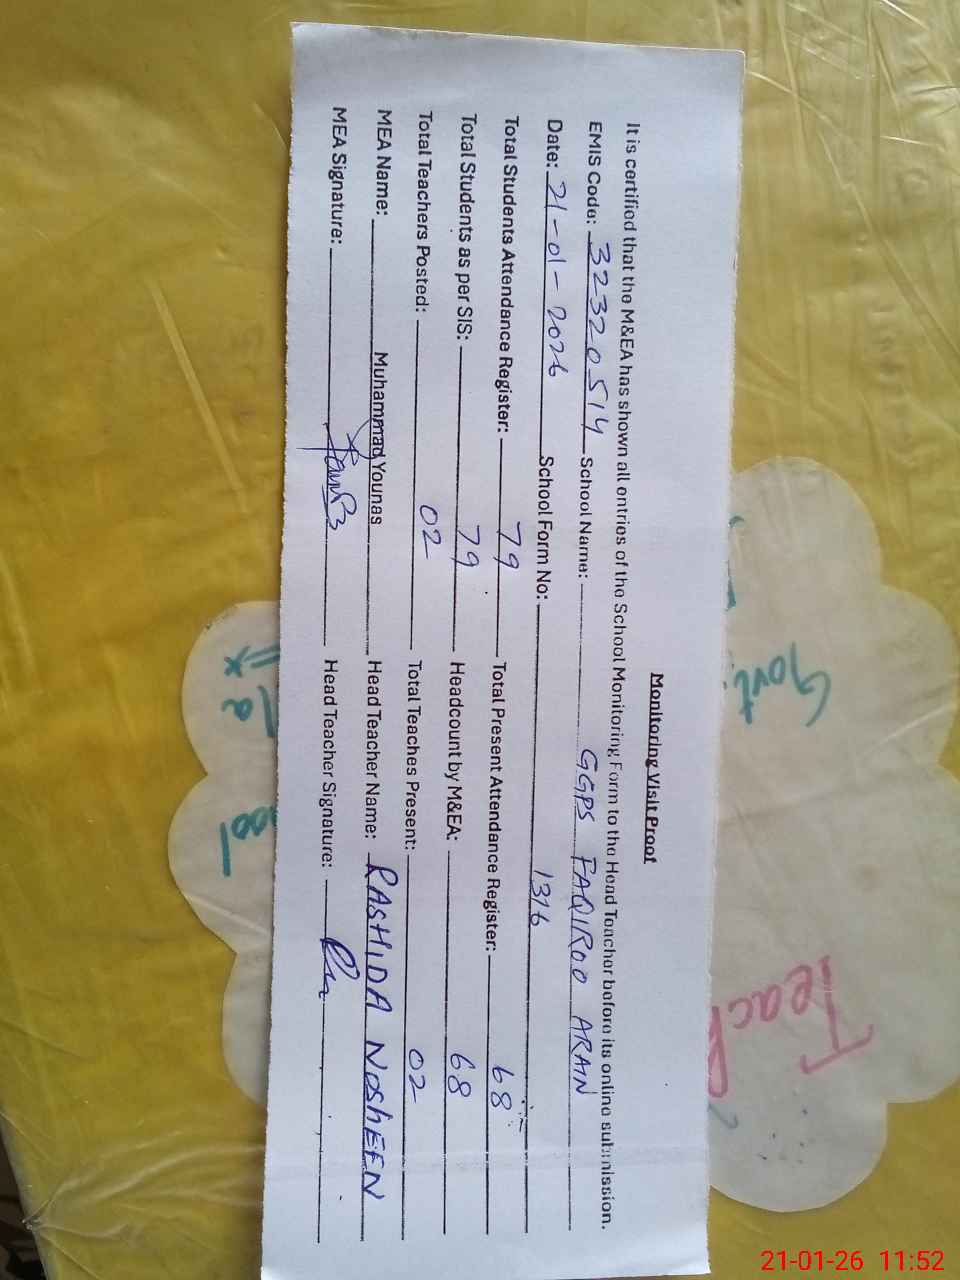 Monitoring Visit Proof
It is certified that the M&EA has shown all entries of the School Monitoring Form to the Head Teacher before its online submission.
EMIS Code: 32320514 School Name: GGPS FAQIROO ARAIN
Date: 21-01-2026 School Form No: 1316
Total Students Attendance Register: 79 Total Present Attendance Register: 68
Total Students as per SIS: 79 Headcount by M&EA: 68
Total Teachers Posted: 02 Total Teaches Present: 02
MEA Name: Muhammad Younas Head Teacher Name: RASHIDA NOSHEEN
MEA Signature: Head Teacher Signature:
Govt:
Teach
21-01-26 11:52